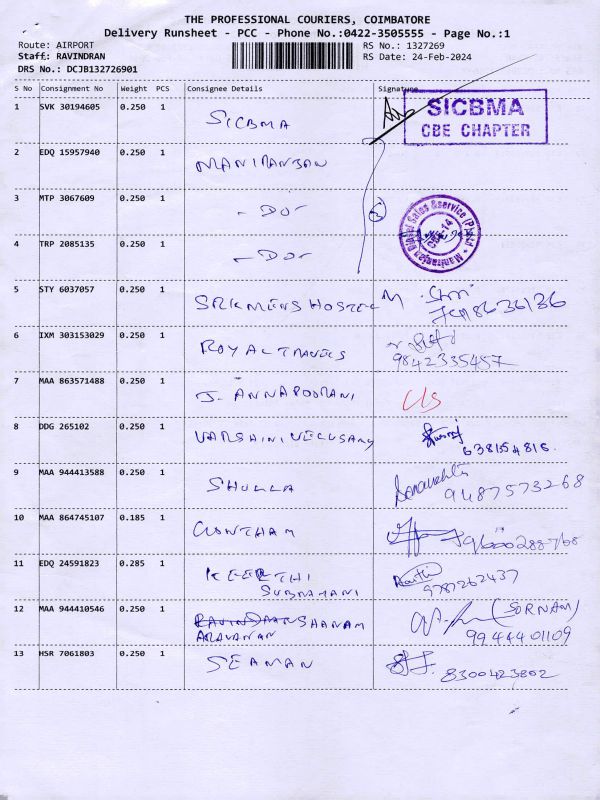 THE PROFESSIONAL COURIERS, COIMBATORE
Delivery Runsheet - PCC - Phone No.:0422-3505555 - Page No.:1
Route: AIRPORT RS No.: 1327269
Staff: RAVINDRAN RS Date: 24-Feb-2024
DRS No.: DCJB132726901
S No Consignment No Weight PCS Consignee Details Signature
1 SVK 30194605 0.250 1 SICBMA
SICBMA
CBE CHAPTER
2 EDQ 15957940 0.250 1 MANIRANJAN
3 MTP 3067609 0.250 1 - DO -
4 TRP 2085135 0.250 1 - DO -
5 STY 6037057 0.250 1 SRK MENS HOSTEL
6 IXM 303153029 0.250 1 ROYAL TRAVELS
9842335457
7 MAA 863571488 0.250 1 J. ANNAPOORANI
8 DDG 265102 0.250 1 VARSHINI VELUSAMY
638154816.
9 MAA 944413588 0.250 1 SHUKLA
9487573268
10 MAA 864745107 0.185 1 GOWTHAM
11 EDQ 24591823 0.285 1 KEERTHI
SUBRAMANI
9787262437
12 MAA 944410546 0.250 1 SHANAM (SORNAM)
ARAVANAN 9944401109
13 HSR 7061803 0.250 1 SEAMAN
8300423802